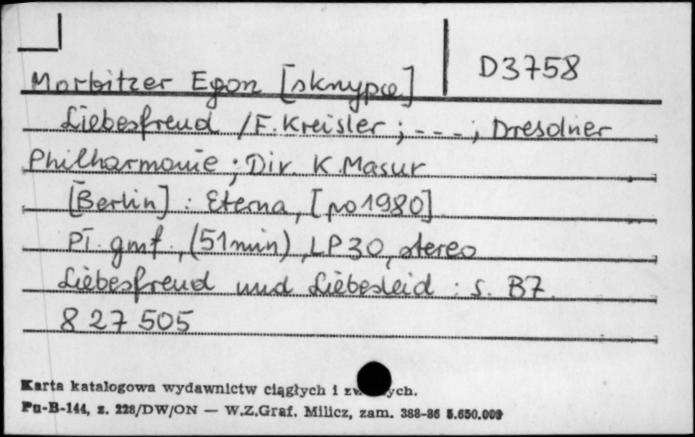 D3758
Morbitzer Egon [skrzypce]
Liebesfreud / F. Kreisler ; - - - ; Dresdner
Philharmonie ; Dir. K. Masur
[Berlin] : Eterna, [po 1980]
Pł. gmf., (51 min), LP 30, stereo
Liebesfreud und Liebesleid : s. B7.
8 27 505
Karta katalogowa wydawnictw ciągłych i
Pu-B-144, z. 228/DW/ON — W.Z.Graf. Milicz, zam. 388-86 5.650.000